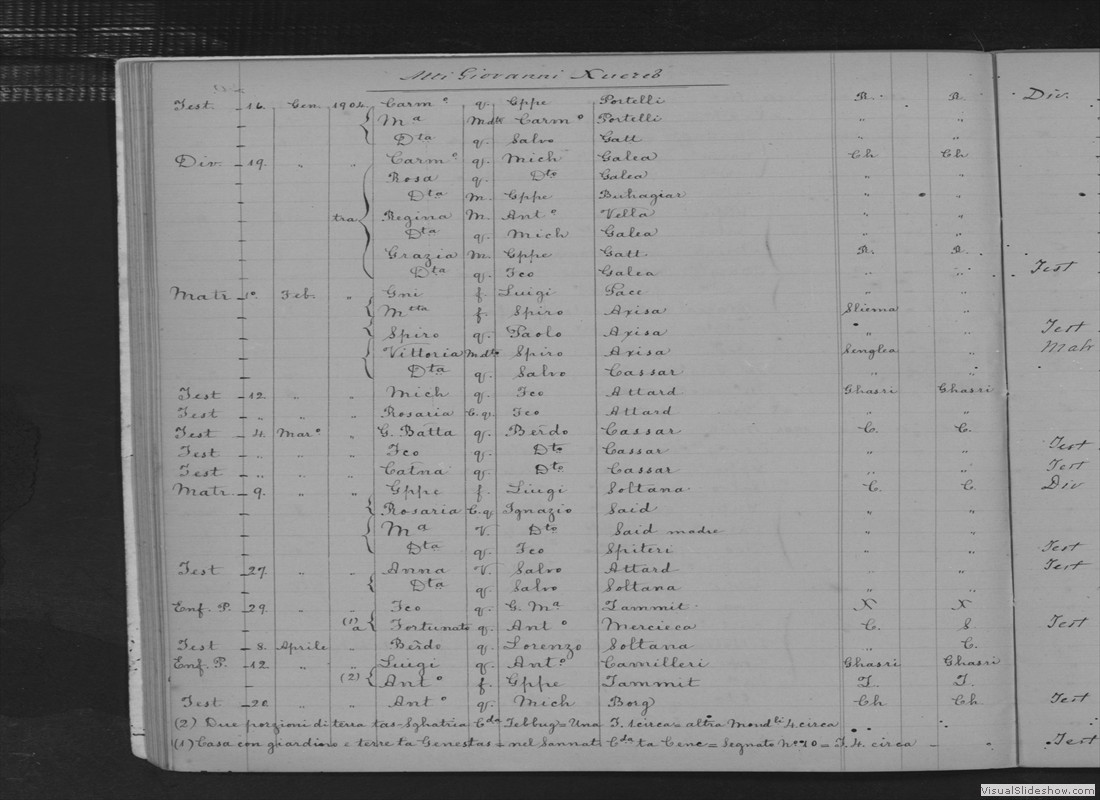 Atti Giovanni Xuereb
Test 16. Gen. 1904 Carm° q. Gppe Portelli R. R. Div.
{ Mª Mdte Carm° Portelli " "
Dta q. Salvo Gatt " "
Div. 19. " " Carm° q. Mich Galea Ch Ch
Rosa q. Dto Galea " "
Dta M. Gppe Buhagiar " "
tra { Regina M. Ant° Vella " "
Dta q. Mich Galea " "
Grazia M. Gppe Gatt R. R.
Dta q. Fco Galea " " Test
Matr 1° Feb. " Gni f. Luigi Pace " "
{ Mcta f. Spiro Axisa Sliema "
{ Spiro q. Paolo Axisa " " Test
{ Vittoria Mdte Spiro Axisa Senglea " Matr
Dta q. Salvo Cassar " "
Test 12. " " Mich q. Fco Attard Ghasri Ghasri
Test " " " Rosaria C. q. Fco Attard " "
Test 4. Mar° " G. Batta q. Berdo Cassar C. C.
Test " " " Fco q. Dto Cassar " " Test
Test " " " Catna q. Dto Cassar " " Test
Matr. 9. " " Gppe f. Luigi Soltana C. C. Div
{ Rosaria C. q. Ignazio Said " "
{ Mª V. Dto Said madre " "
Dta q. Fco Spiteri " " Test
Test 27. " " Anna V. Salvo Attard " " Test
{ Dta q. Salvo Soltana " "
Enf. P. 29. " " Fco q. G. Mª Tammit X X
(1) a { Fortunato q. Ant° Mercieca C. S. Test
Test 8. Aprile " Berdo q. Lorenzo Soltana " C.
Enf. P. 12 " " Luigi q. Ant° Camilleri Ghasri Ghasri
(2) { Ant° f. Gppe Tammit T. T.
Test 20 " " Ant° q. Mich Borg Ch Ch Test
(2) Due porzioni di terra tas-Sghatria Cda Zebbug = Una T. 1 circa = altra Mondli 4. circa
(1) Casa con giardino e terre ta Genestas = nel Sannat Cda ta Cenc = Segnato N° 10 = T. 4. circa Test
VisualSlideshow.com